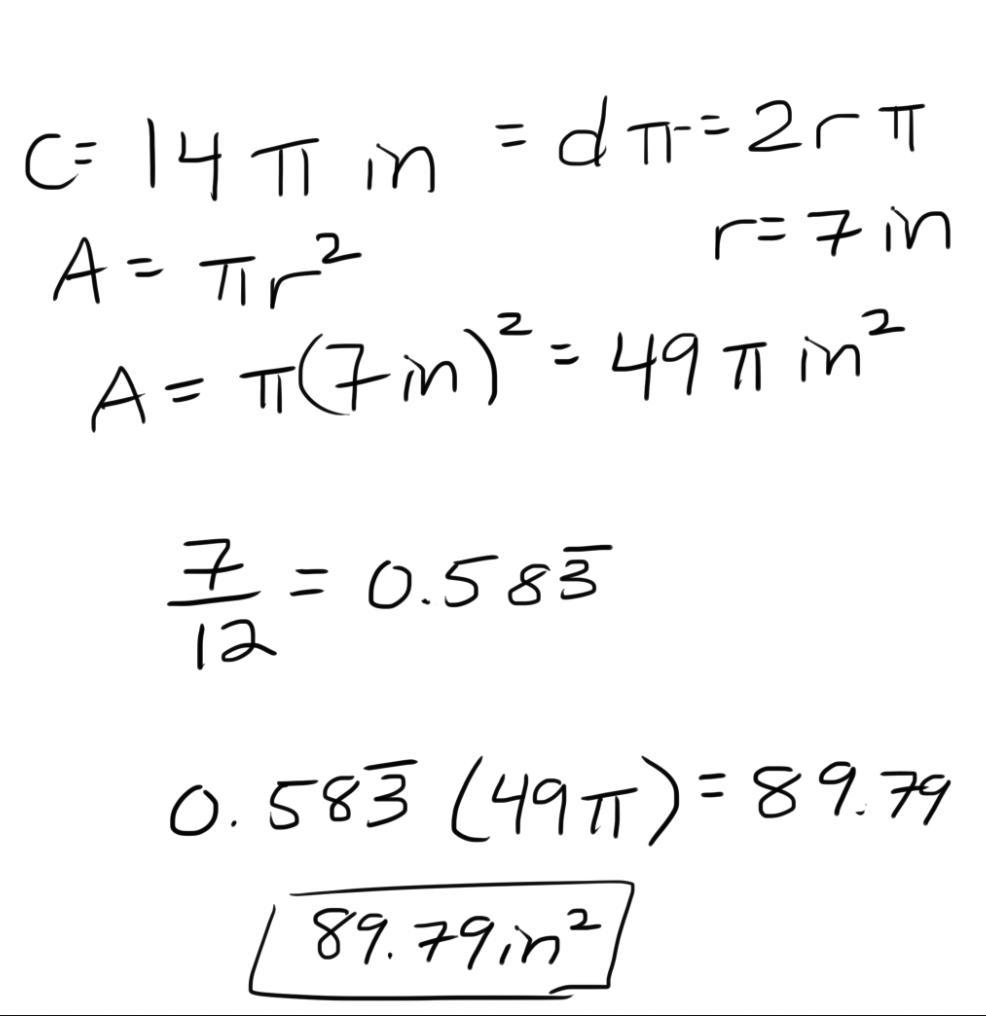 C= 14 π in = dπ = 2rπ
A = πr² r= 7 in
A = π(7 in)² = 49 π in²
7/12 = 0.583̅
0.583̅ (49π) = 89.79
89.79 in²